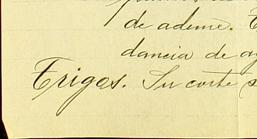 de ademe.
dancia de
Trigos. Su corte